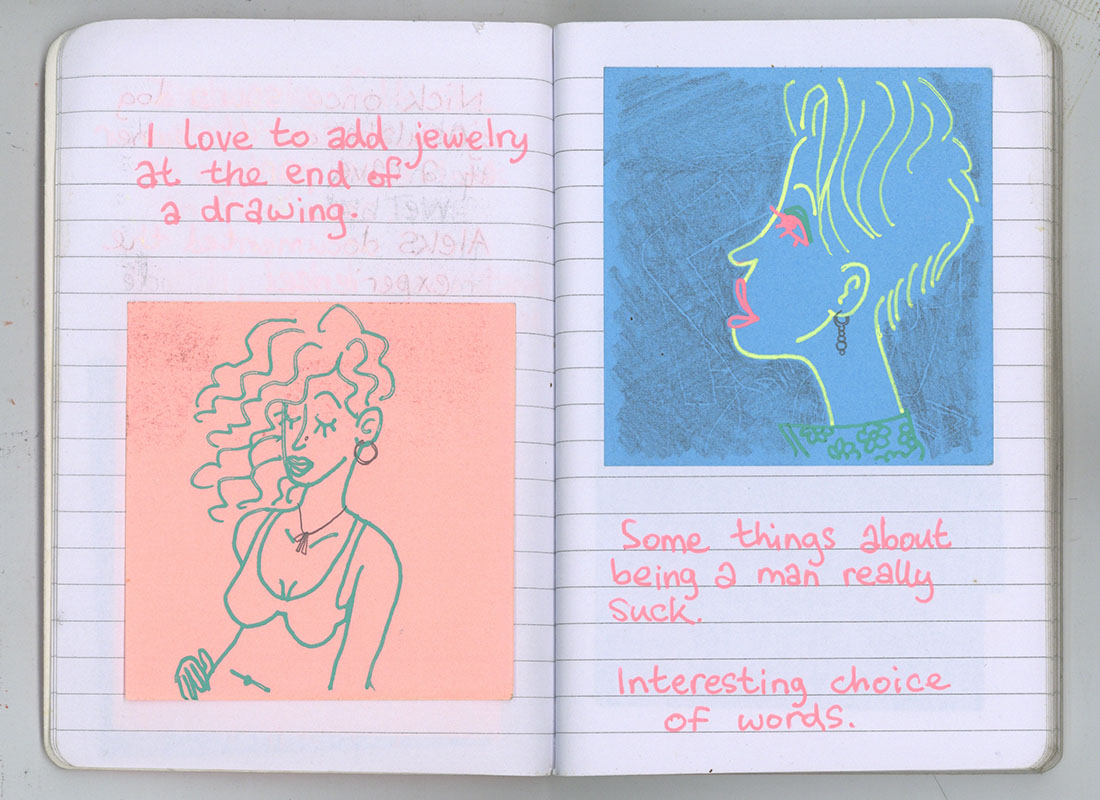 I love to add jewelry
at the end of
a drawing.
Some things about
being a man really
suck.
Interesting choice
of words.